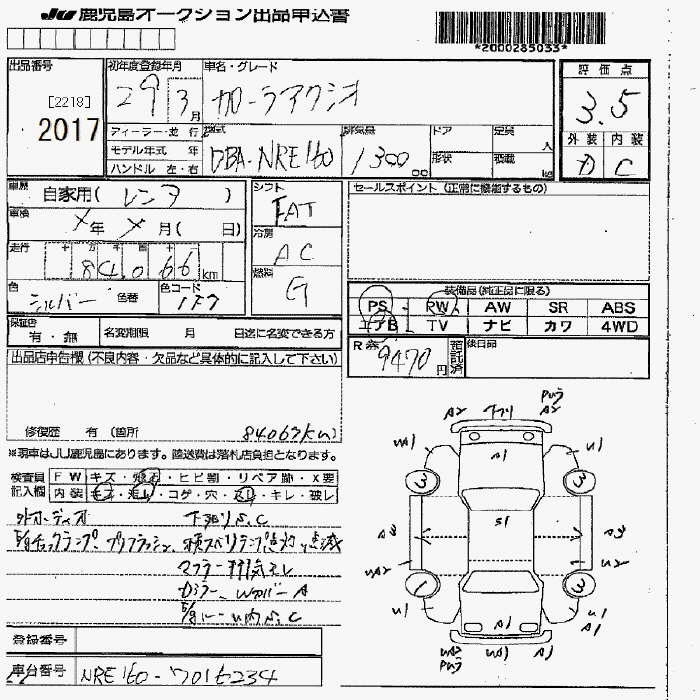 JU 鹿児島オークション出品申込書
*2000285033*
出品番号
[2218]
2017
初年度登録年月
29 3月
車名・グレード
カローラアクシオ
評価点
3.5
外装 内装
D C
ディーラー・並行
モデル年式 年
ハンドル 左・右
型式
DBA-NRE160
排気量
1300
ドア
形状
定員 人
積載 kg
車歴
自家用(レンタ)
車検
年 月(日)
走行
84,066 km
色
シルバー
色替
色コード
1F7
シフト
FAT
冷房
AC
燃料
G
セールスポイント(正常に機能するもの)
装備品(純正品に限る)
PS RW AW SR ABS
エアB TV ナビ カワ 4WD
R券
9470円
預託済
後日品
保証書
有・無
名変期限 月 日迄に名変できる方
出品店申告欄(不良内容・欠品など具体的に記入して下さい)
修復歴 有(箇所
84067km)
※現車はJU鹿児島にあります。陸送費は落札店負担となります。
検査員
記入欄
FW キズ・飛石・ヒビ割・リペア跡・X要
内装 キズ・汚レ・コゲ・穴・スレ・キレ・破レ
外オーディオ
下廻りS,C
E/gチェックランプ、
マフラー排気モレ
A2 フクリ A2
A1
S1
A1
U1
U1
3
3
1
3
A3
A3
UA2
U2
U1
U1
A1
UA2
U1
A1
登録番号
車台番号
NRE160-7016234